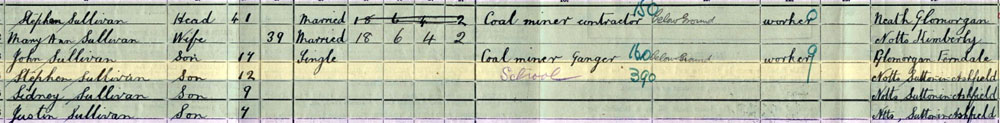 Stephen Sullivan Head 41 Married 18 6 4 2 Coal miner contractor 150 below Ground worker Neath Glomorgan
Mary Ann Sullivan Wife 39 Married 18 6 4 2 Notts Kimberly
John Sullivan Son 17 Single Coal miner Ganger 160 below Ground worker 9 Glomorgan Ferndale
Stephen Sullivan Son 12 School 390 Notts Sutton in Ashfield
Sidney Sullivan Son 9 Notts Sutton in Ashfield
Justin Sullivan Son 7 Notts, Sutton in Ashfield